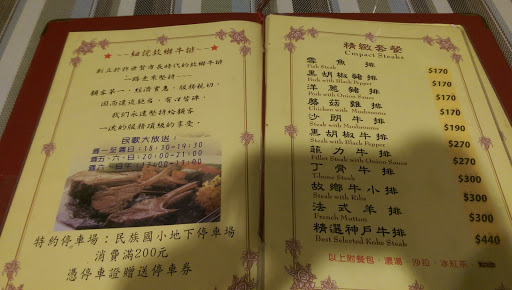 ~~細說敘鄉牛排~~
創立於許世賢市長時代的敘鄉牛排
一路走來堅持---
顧客第一，經濟實惠，服務親切，
因而遠近馳名，有口皆碑。
我們永遠堅持給顧客
一流的服務頂級的享受。
民歌大放送：
週一至四日：18:30-19:30
週五.六.日：20:00-21:00
特約停車場：民族國小地下停車場
消費滿200元
憑停車證贈送停車券
精緻套餐
Cmpact Steaks
雪魚排
Fish Steak
$170
黑胡椒豬排
Pork with Black Pepper
$170
洋蔥豬排
Pork with Onion Sauce
$170
蘑菇雞排
Chicken with Mushrooms
$170
沙朗牛排
Steak with Mushrooms
$190
黑胡椒牛排
Steak with Black Pepper
$270
菲力牛排
Fillet Steak with Onion Sauce
$270
丁骨牛排
T-bone Steak
$300
故鄉牛小排
Steak with Ribs
$300
法式羊排
French Mutton
$300
精選神戶牛排
Best Selected Kobe Steak
$440
以上附餐包．濃湯．沙拉．冰紅茶．